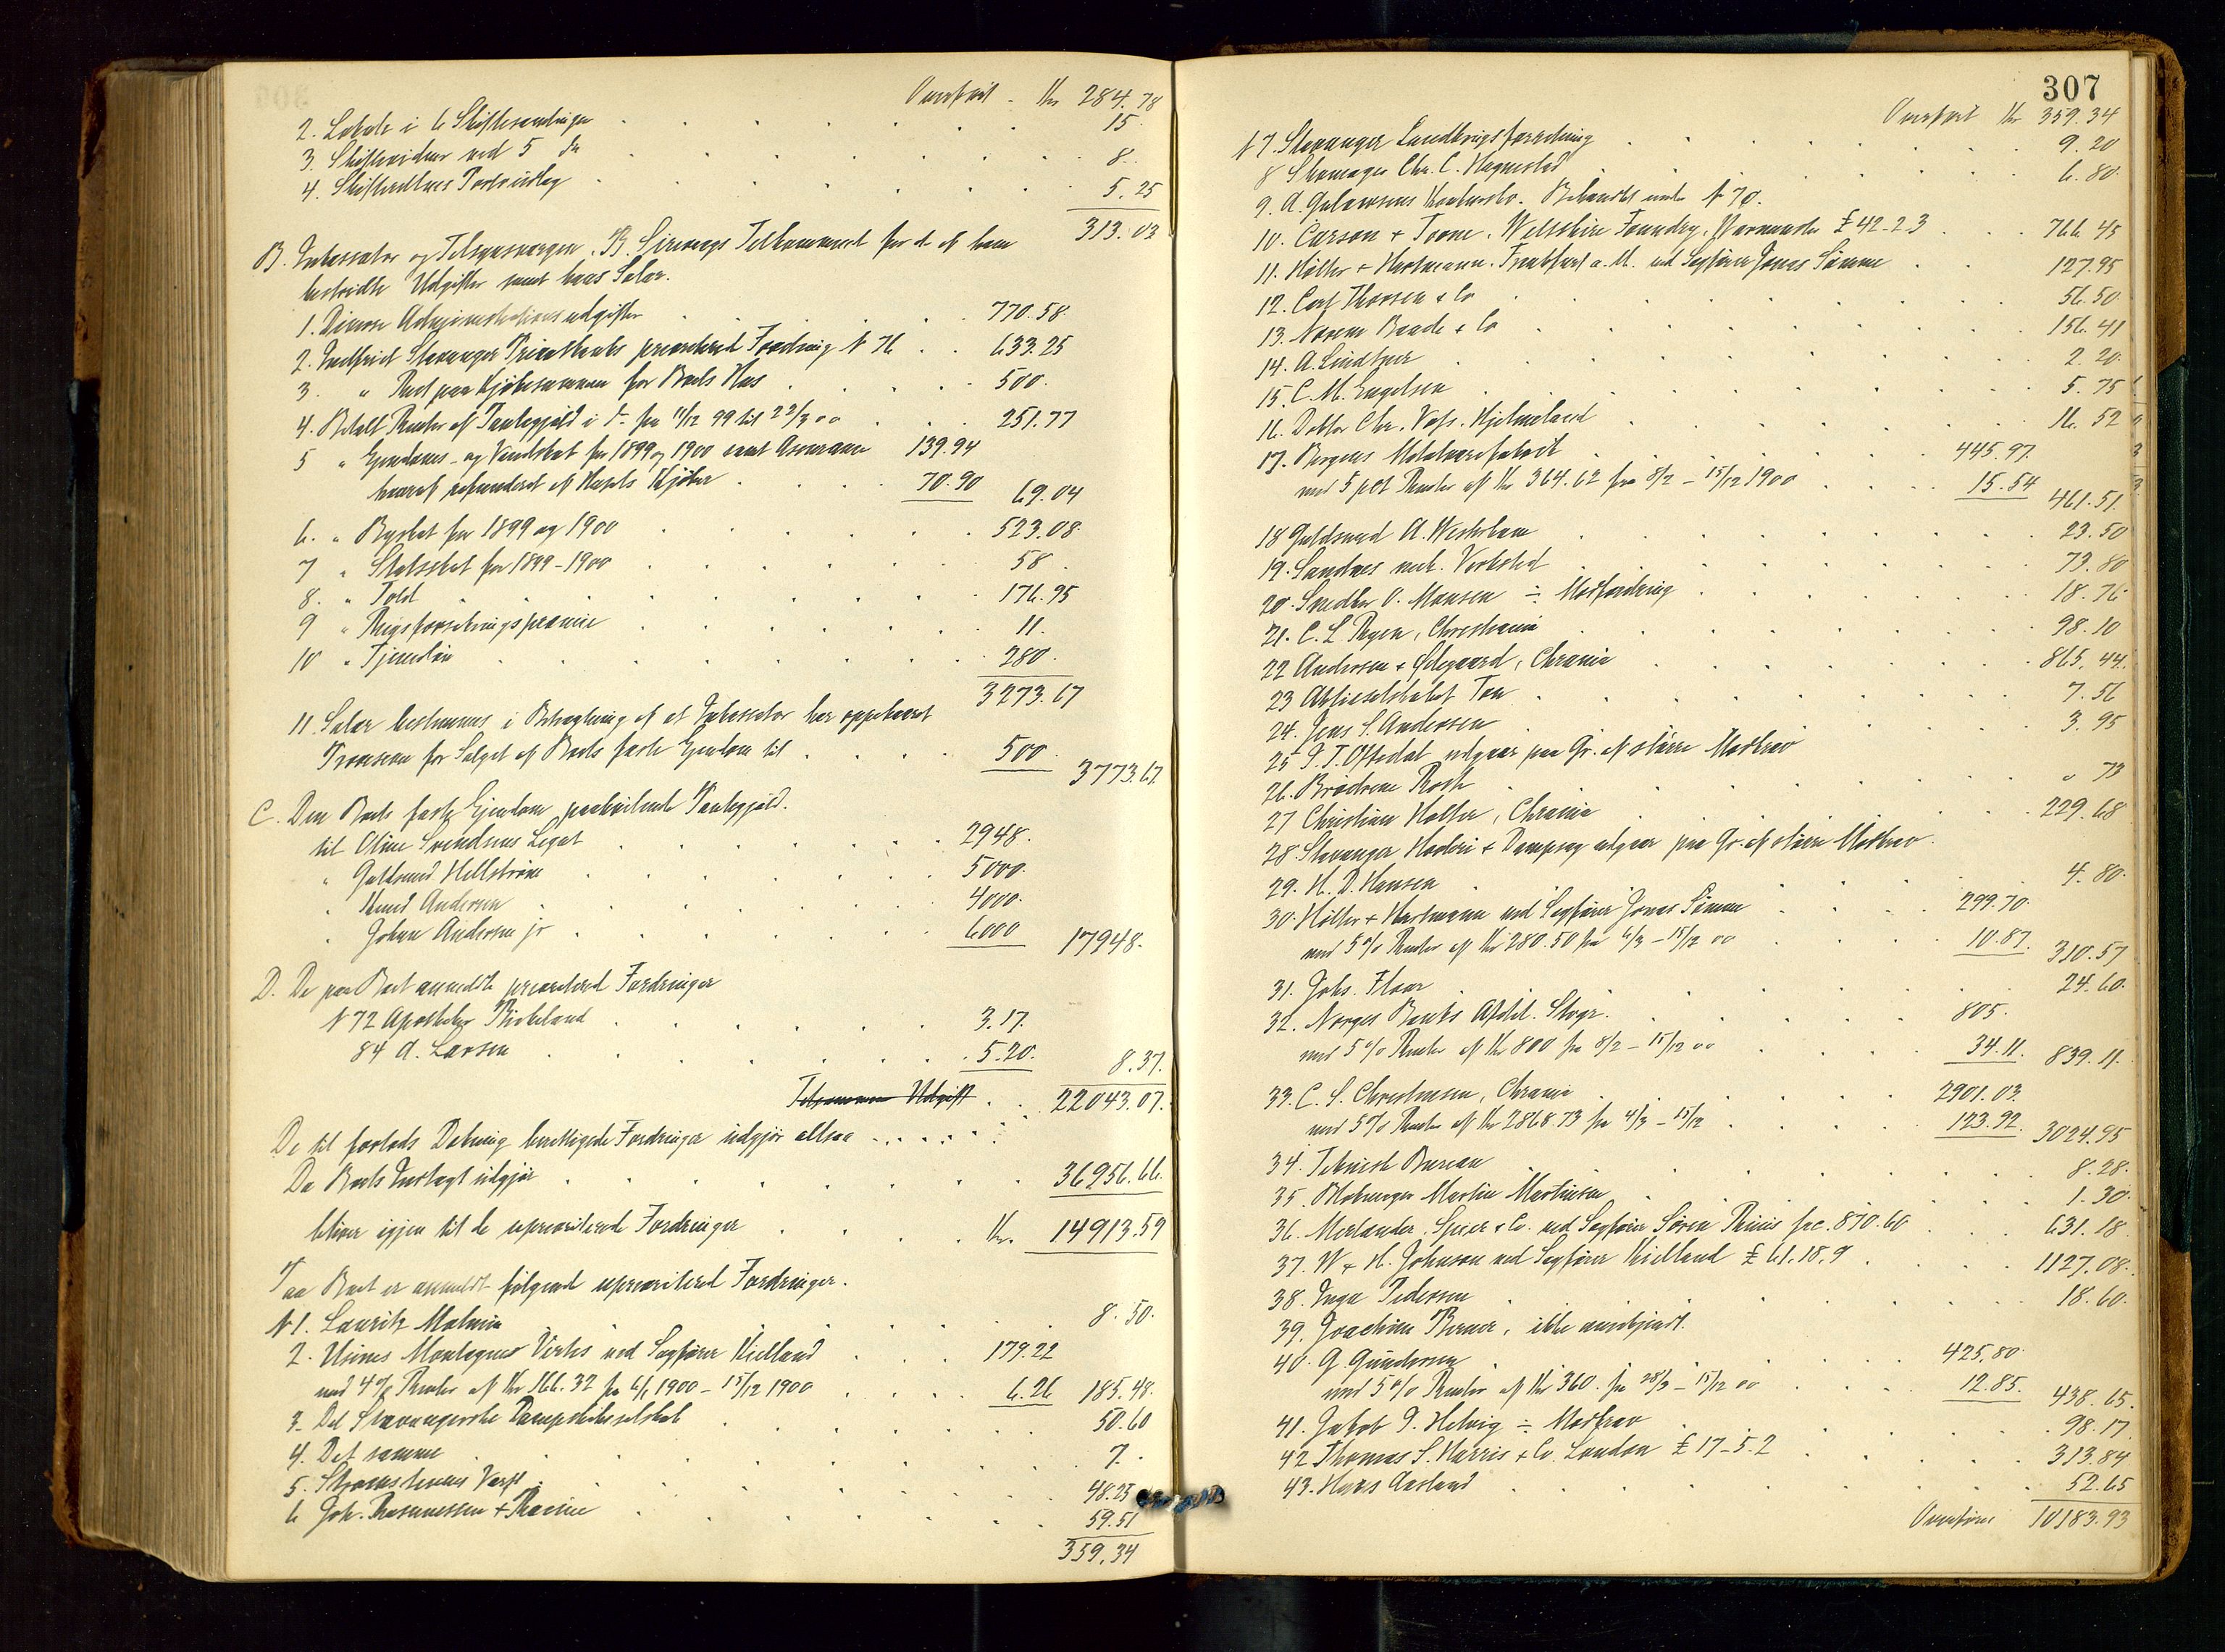 Overført - Kr 284.78
2. Lokale i 6 Skiftesamlinger 15.
3. Skiftevidner ved 5 do 8.
4. Skifterettens Portoudlæg 5.25
313.03
B. Inkassator og Tilsynsmanden B. Sirevaags Tilkommende for de af ham
bestridte Udgifter samt hans Salær.
1. Diverse Administrationsudgifter 770.58.
2. Indfriet Stavanger Privatbanks prioriterede Fordring N 76 633.25
3. " Rest paa Kjøbesummen for Boets Hus 500.
4. Betalt Renter af Pantegjæld i do fra 11/12 99 til 22/3 00 251.77
5 " Eiendoms- og Vandskat for 1899 og 1900 samt Assurance 139.94
hvoraf refunderet af Husets Kjøber 70.90 69.04
6. " Byskat for 1899 og 1900 523.08.
7 " Statsskat for 1899-1900 58.
8. " Told 176.95
9 " Rigsforsikringspræmie 11.
10 " Tjenerløn 280.
3273.67
11. Salær bestemmes i Betragtning af at Inkassator har oppebaaret
Provision for Salget af Boets faste Eiendom til 500. 3773.67.
C. Den Boets faste Eiendom paahvilende Pantegjæld.
til Oline Svendsens Legat 2948.
" Guldsmed Hellstrøm 5000.
" Knud Andersen 4000.
" Johan Andersen jr 6000 17948.
D. De paa Boet anmeldte prioriterede Fordringer
N 72 Apotheker Birkeland 3.17.
84 A. Larsen 5.20. 8.37.
Tilsammen Udgift 22043.07.
De til forlods Dækning berettigede Fordringer udgjør altsaa
Da Boets Indtægt udgjør 36956.66.
bliver igjen til de uprioriterede Fordringer Kr. 14913.59
Paa Boet er anmeldt følgende uprioriterede Fordringer.
N 1. Lauritz Malmin 8.50.
2. Usines Montagnes Vertes ved Sagfører Kielland 179.22
med 4% Renter af Kr 166.32 fra 6/1 1900 - 15/12 1900 6.26 185.48.
3. Det Stavangerske Dampskibsselskab 50.60
4. Det samme 7.
5. Strømsteens Værft 48.25
6 Joh. Rasmussen + Racine 59.51
359.34
307
Overført Kr 359.34
N 7. Stavanger Landbrugsforretning 9.20
8 Skomager Chr. C. Hagnestad 6.80.
9. A. Gulowsens Konkursbo. Behandles under N 70.
10. Carson + Toone. Wiltshire Foundry, Warminster £ 42-2.3 766.45
11. Hölter + Hartmann. Frankfurt a. M. ved Sagfører Jonas Sømme 127.95
12. Carl Thorsen & Co 56.50
13. Norem Baade & Co 156.41
14. A. Lindtner 2.20.
15. C. M. Engelsen 5.75
16. Doktor Chr. Vofs. Hjelmeland 16.52
17. Bergens Metalvarefabrik 445.97.
med 5 pct Renter af Kr 364.62 fra 8/2 - 15/12 1900 15.54 461.51.
18 Guldsmed A. Westerlem 23.50
19. Sandnes mek. Verksted 73.80
20. Snedker O. Monsen ÷ Modfordring 18.76
21. C. L. Ryen, Christiania 98.10
22 Andresen & Ødegaard, Chrania 865.44.
23 Aktieselskabet Ton 7.56
24. Jens S. Andersen 3.95
25 I. T. Oftedal udgaar paa Gr. af større Modkrav
26. Brødrene Rosk " 73
27 Christian Holter, Chrania 229.68
28. Stavanger Høvleri & Dampsag udgaar paa Gr. af større Modkrav.
29. H. D. Hansen 4.80.
30. Hölter + Hartmann ved Sagfører Jonas Sømme 299.70.
med 5% Renter af Kr 280.50 fra 6/3 - 15/12 00 10.87. 310.57
31. Johs. Floor 24.60.
32. Norges Banks Afdel. Stvgr. 805.
med 5% Renter af Kr 800 fra 8/2 - 15/12 00 34.11. 839.11.
33. C. S. Christensen, Chrania 2901.03.
med 5% Renter af Kr 2868.73 fra 4/3 - 15/12 123.92. 3024.95
34. Teknisk Bureau 8.28.
35. Maleren Martin Martinsen 1.30.
36. Merlander, Speer & Co. ved Sagfører Søren Riis frc. 870.60 631.18
37. W & H. Johnson ved Sagfører Kielland £ 61.18.9 1127.08.
38. Inga Pedersen 18.60.
39. Joachim Berner, ikke anerkjendt.
40. G. Gundersen 425.80.
med 5% Renter af Kr 360. fra 28/3 - 15/12 00 12.85. 438.65.
41. Jakob P. Helvig ÷ Modkrav 98.17.
42 Thomas S. Harris & Co. London £ 17-5.2 313.84
43. Hans Aasland 52.65
Overføres 10183.93